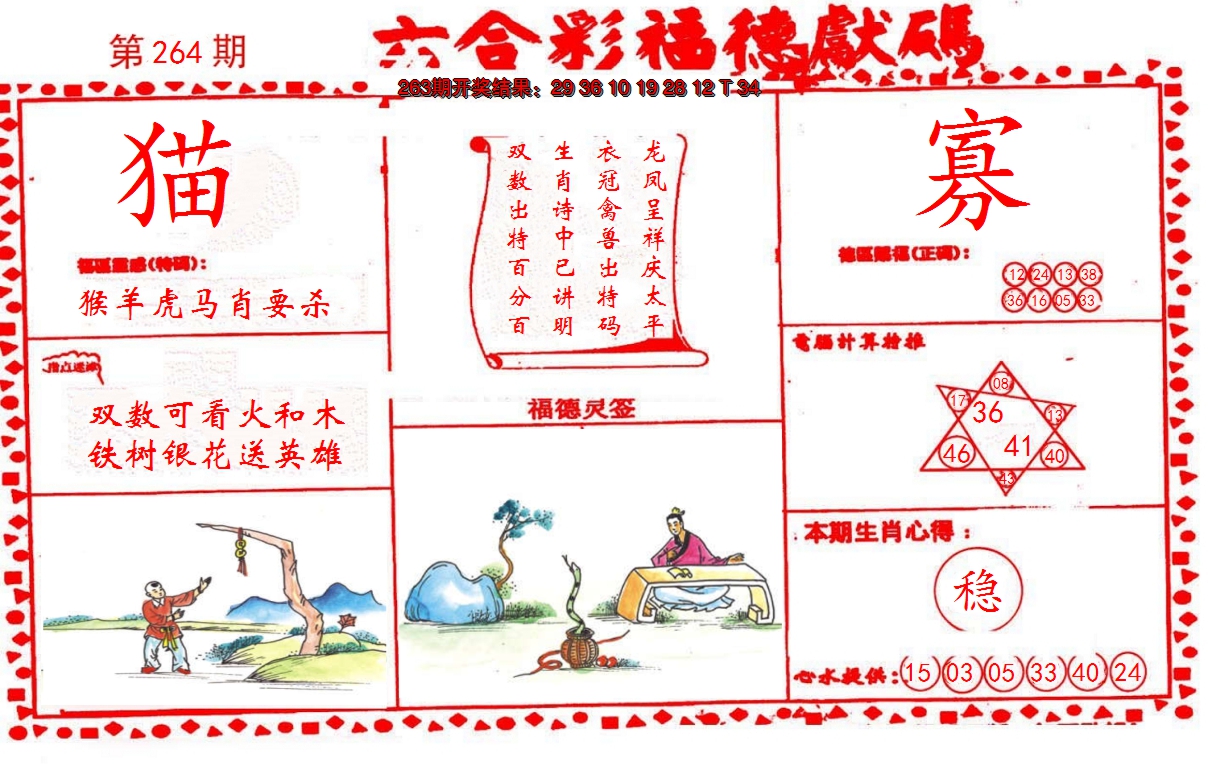 第 264 期
六合彩福德獻碼
263期开奖结果：29 36 10 19 28 12 T 34
猫
福區靈感(特碼)：
猴羊虎马肖要杀
指点迷津
双数可看火和木
铁树银花送英雄
龙凤呈祥庆太平
衣冠禽兽出特码
生肖诗中已讲明
双数出特百分百
福德灵签
寡
德區賜福(正碼)：
12 24 13 38
36 16 05 33
電腦计算拾推
08
17 36 13
46 41 40
43
本期生肖心得：
稳
心水提供：15 03 05 33 40 24